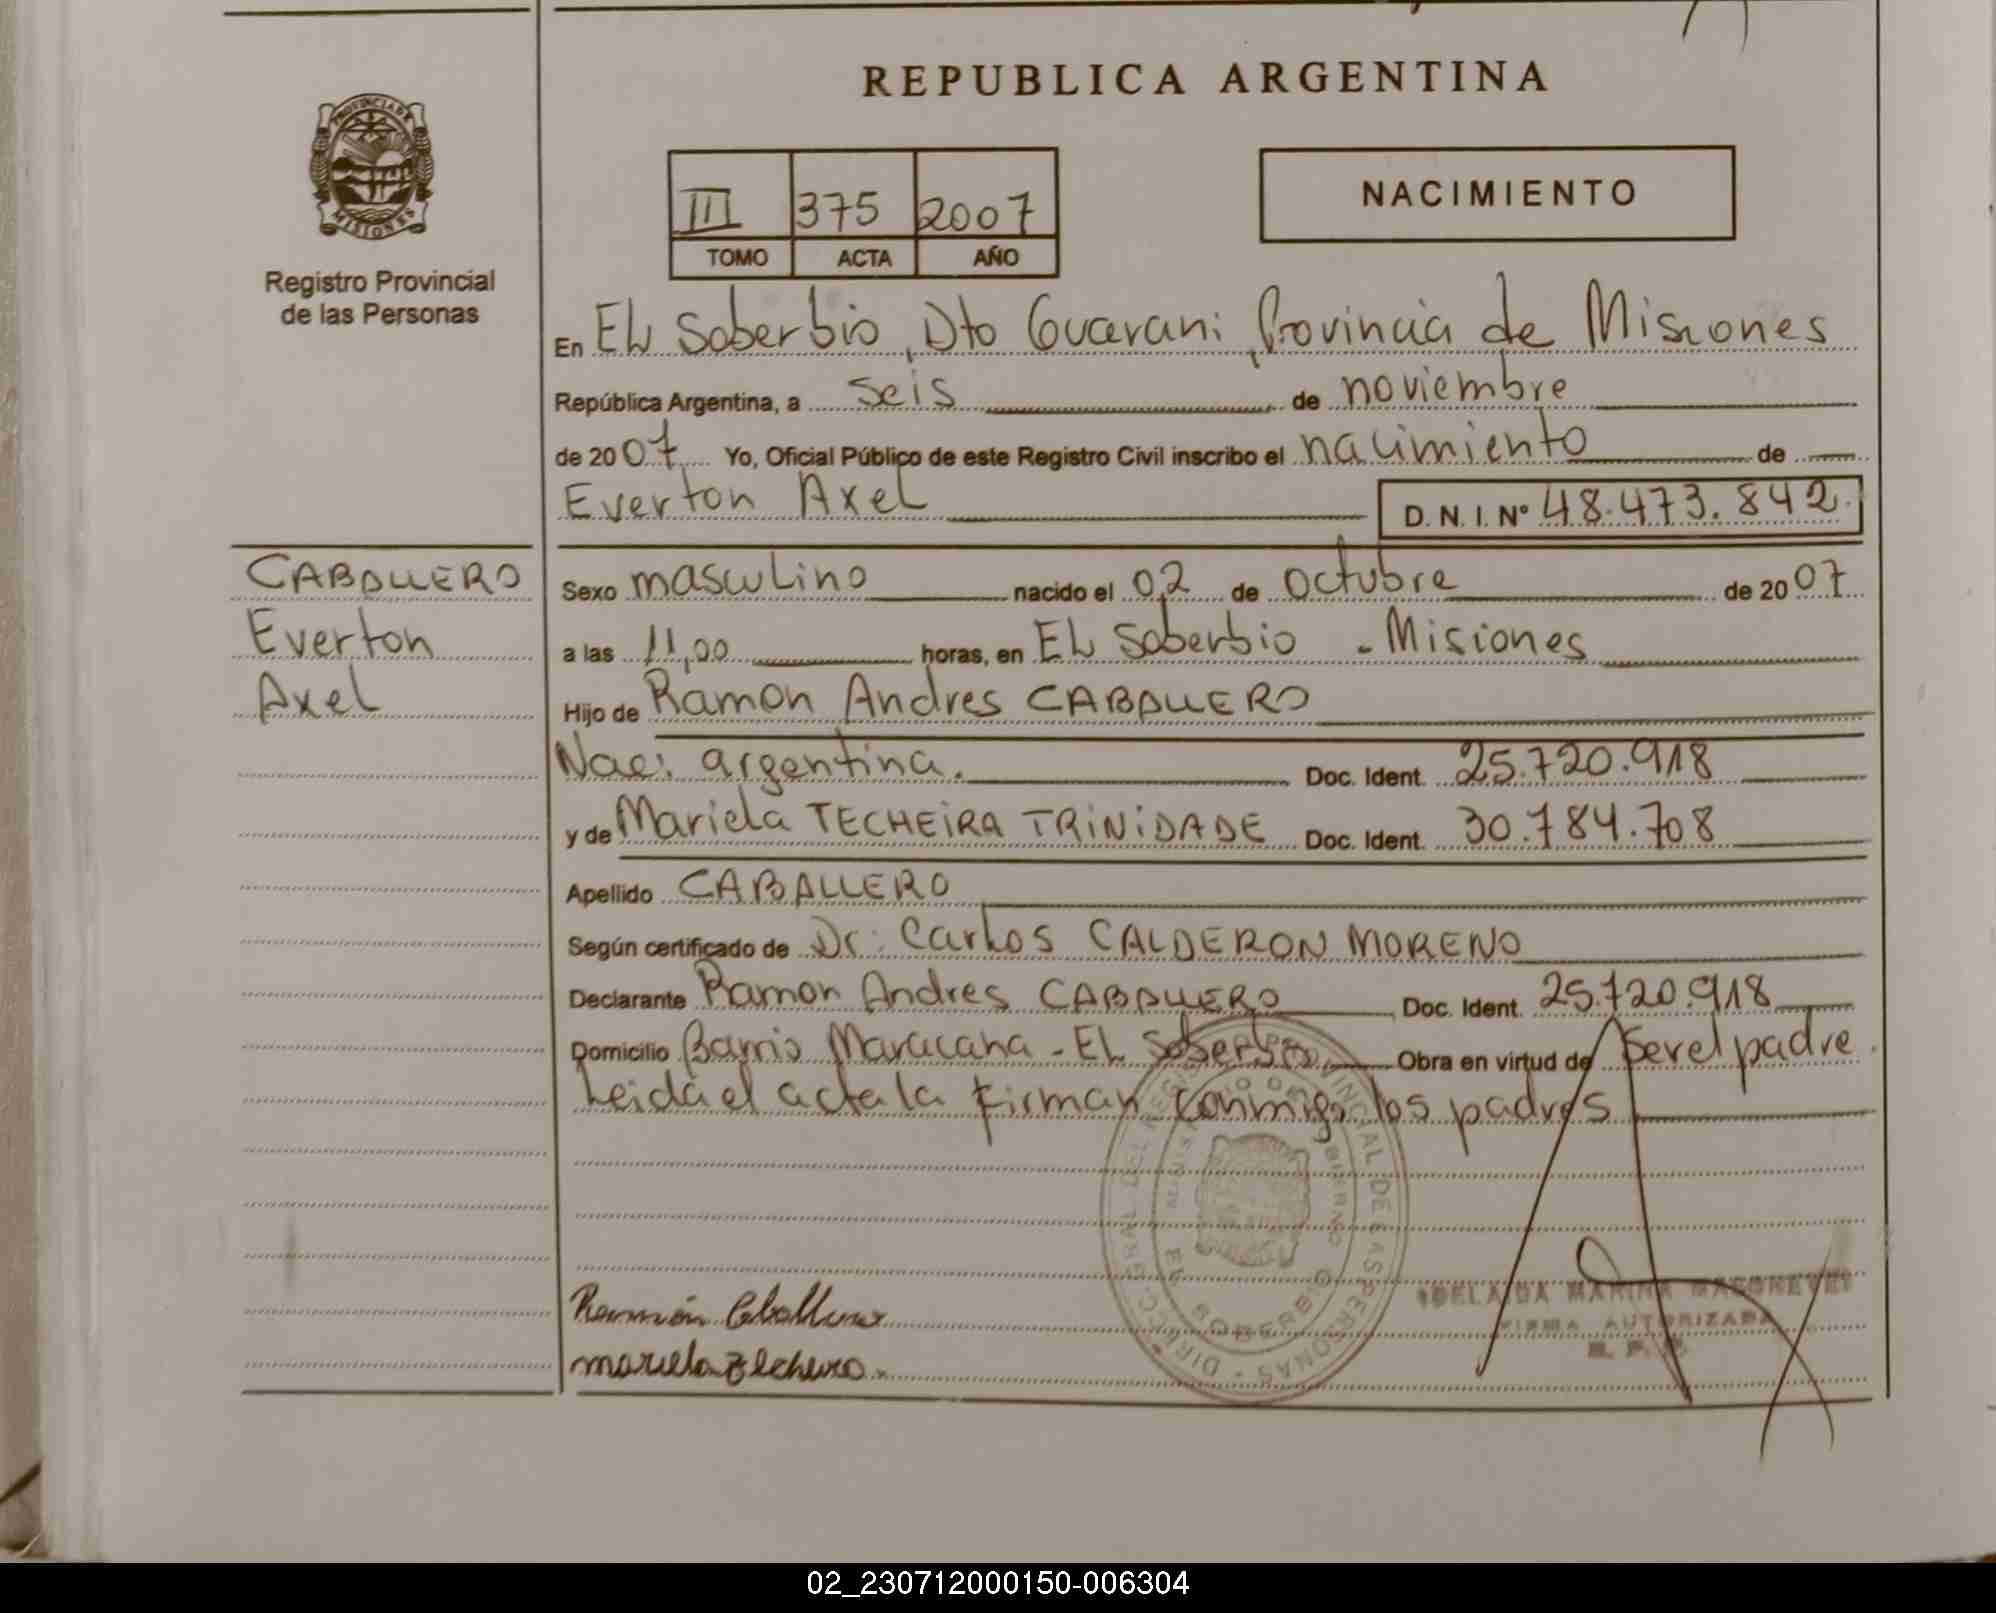 REPUBLICA ARGENTINA
PROVINCIA DE
MISIONES
Registro Provincial
de las Personas
III 375 2007
TOMO ACTA AÑO
NACIMIENTO
En EL Soberbio, Dto Guarani, Provincia de Misiones
República Argentina, a seis de noviembre
de 2007 Yo, Oficial Público de este Registro Civil inscribo el nacimiento de
Everton Axel D.N.I. Nº 48.473.842
CABALLERO
Everton
Axel
Sexo masculino nacido el 02 de octubre de 2007
a las 11,00 horas, en EL Soberbio - Misiones
Hijo de Ramon Andres CABALLERO
Nac: argentina. Doc. Ident. 25.720.918
y de Mariela TECHEIRA TRINIDADE Doc. Ident. 30.784.708
Apellido CABALLERO
Según certificado de Dr. Carlos CALDERON MORENO
Declarante Ramon Andres CABALLERO Doc. Ident. 25.720.918
Domicilio Barrio Maracana - EL Soberbio Obra en virtud de Ser el padre.
Leida el acta la firman conmigo los padres
Ramón Caballero
mariela
DIRECC. GRAL DEL REGISTRO PROVINCIAL DE LAS PERSONAS
MINISTERIO DE GOBIERNO
EL SOBERBIO
MARINA
FIRMA AUTORIZADA
02_230712000150-006304